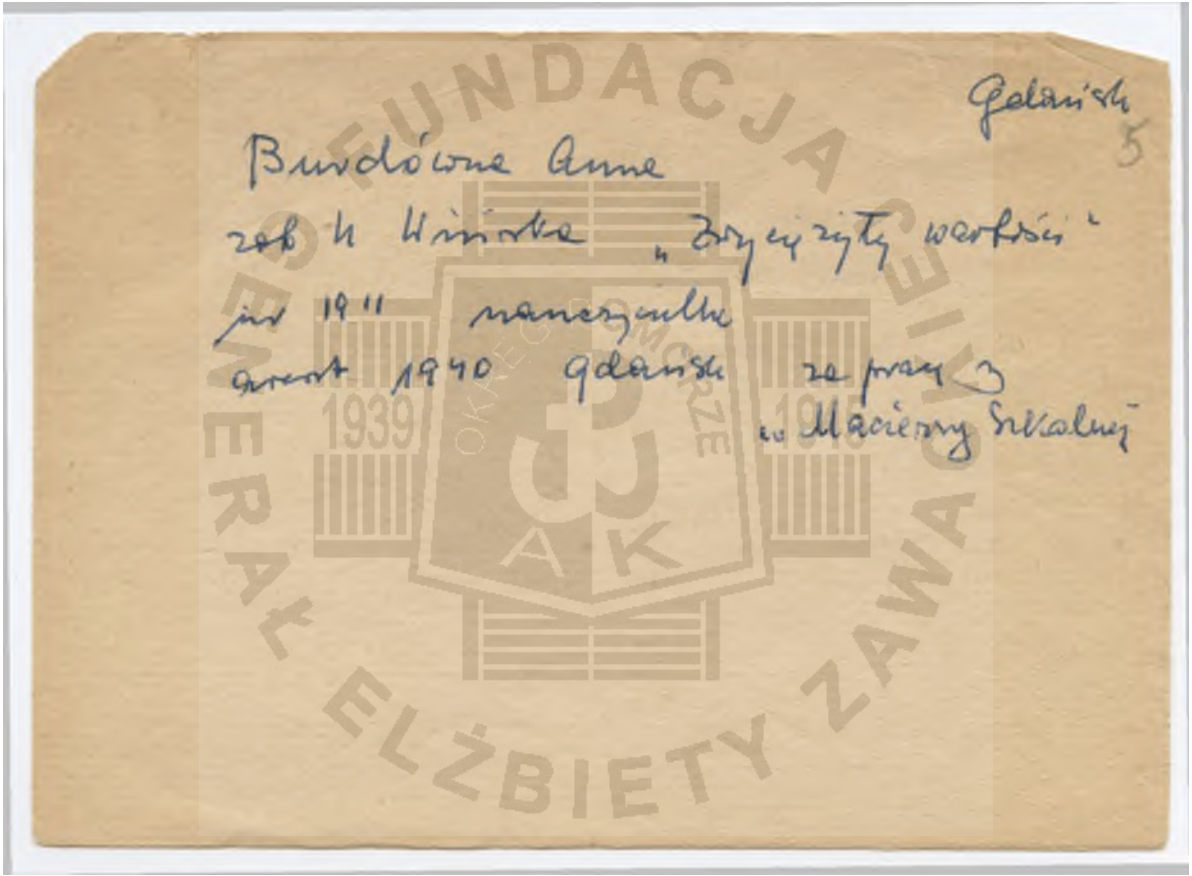 Gdańsk
5
Burdówna Anna
zob U Wińska „Zwyciężyły wartości"
ur 1911 nauczycielka
areszt 1940 Gdańsk za pracę
w Macierzy Szkolnej
FUNDACJA
GENERAŁ ELŻBIETY ZAWACKIEJ
OKRĘG POMORZE
1939 1945
AK